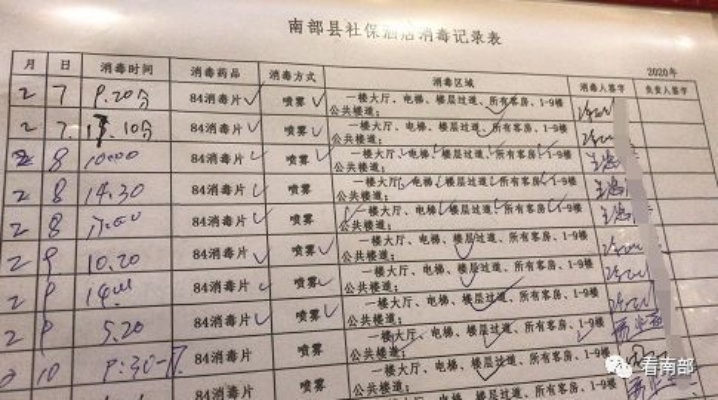 南部县社保酒店消毒记录表
2020年
月 日 消毒时间 消毒药品 消毒方式 消毒区域 消毒人签字 负责人签字
2 7 9.20分 84消毒片✓ 喷雾✓ 一楼大厅、电梯、楼层过道、所有客房、1-9楼
公共楼道;
2 7. 10分 84消毒片✓ 喷雾✓ 一楼大厅、电梯、楼层过道、所有客房、1-9楼
公共楼道;
2 8 10:00 84消毒片✓ 喷雾✓ 一楼大厅、电梯、楼层过道、所有客房、1-9楼
公共楼道;
2 8 14.30 84消毒片✓ 喷雾✓ 一楼大厅、电梯、楼层过道、所有客房、1-9楼
公共楼道;
2 8 84消毒片✓ 喷雾 一楼大厅、电梯、楼层过道、所有客房、1-9楼
公共楼道;
2 9 10.20 84消毒片✓ 喷雾✓ 一楼大厅、电梯、楼层过道、所有客房、1-9楼
公共楼道;
2 9 84消毒片✓ 喷雾✓ 一楼大厅、电梯、楼层过道、所有客房、1-9楼
公共楼道;
2 9 5.20 84消毒片✓ 喷雾✓ 一楼大厅、电梯、楼层过道、所有客房、1-9楼
公共楼道;
10 9:30 84消毒片 喷雾 一楼大厅、电梯、楼层过道、所有客房、1-9楼
公共楼道;
看南部